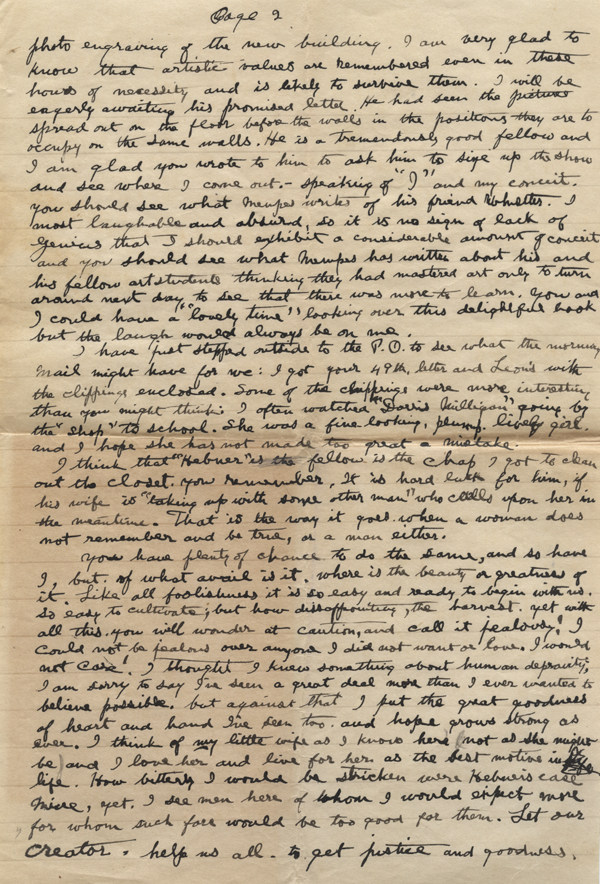 Page 2
photo engraving of the new building. I am very glad to
know that artistic values are remembered even in these
hours of necessity and is likely to survive them. I will be
eagerly awaiting his promised letter. He had seen the picture
spread out on the floor before the walls in the positions they are to
occupy on the same walls. He is a tremendously good fellow and
I am glad you wrote to him to ask him to size up the show
and see where I come out. - speaking of "I" and my conceit.
You should see what Menpes writes of his friend Whistler. I
most laughable and absurd, so it is no sign of lack of
genius that I should exhibit a considerable amount of conceit
and you should see what Mempes has written about his and
his fellow art students thinking they had mastered art only to turn
around next day to see that there was more to learn. You and
I could have a "lovely time" looking over this delightful book
but the laugh would always be on me.
I have just stepped outside to the P.O. to see what the morning
mail might have for me: I got your 49th, letter and Leon's with
the clippings enclosed. Some of the clippings were more interesting
than you might think: I often watched "Doris Killigan" going by
the "shop" to school. She was a fine looking, plump, lively girl.
and I hope she has not made too great a mistake.
I think that "Hebner" is the fellow is the chap I got to clean
out the closet. you remember, It is hard luck for him, if
his wife is "taking up with some other man" who calls upon her in
the meantime. That is the way it goes when a woman does
not remember and be true, or a man either.
You have plenty of chance to do the same, and so have
I, but. of what avail is it. where is the beauty or greatness of
it. Like all foolishness it is so easy and ready to begin with us.
so easy to cultivate; but how dissappointing, the harvest. yet with
all this. you will wonder at caution, and call it jealousy! I
could not be jealous over anyone I did not want or love. I would
not care! I thought I knew something about human depravity,
I am sorry to say I've seen a great deal more than I ever wanted to
believe possible. but against that I put the great goodness
of heart and hand I've seen too. and hope grows strong as
ever. I think of my little wife as I know her (not as she might
be) and I love her and live for her. as the best motive in
life. How bitterly I would be stricken were Hebner's case
mine, yet. I see men here of whom I would expect more
for whom such fare would be too good for them. Let our
Creator. help us all. to get justice and goodness.